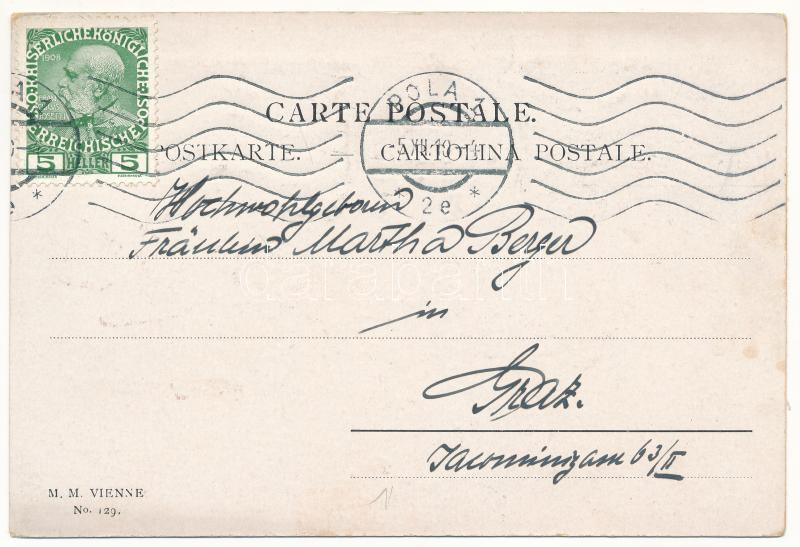 KAISERLICHE KÖNIGLICHE
1908
ÖSTERREICHISCHE
5 HELLER 5
POLA 3
CARTE POSTALE.
5 XII 10
POSTKARTE. — CARTOLINA POSTALE.
* 2e *
Hochwohlgeboren
Fräulein Martha Berger
darabanth
in
Graz.
Jacominigasse 63/II
M. M. VIENNE
No. 129.